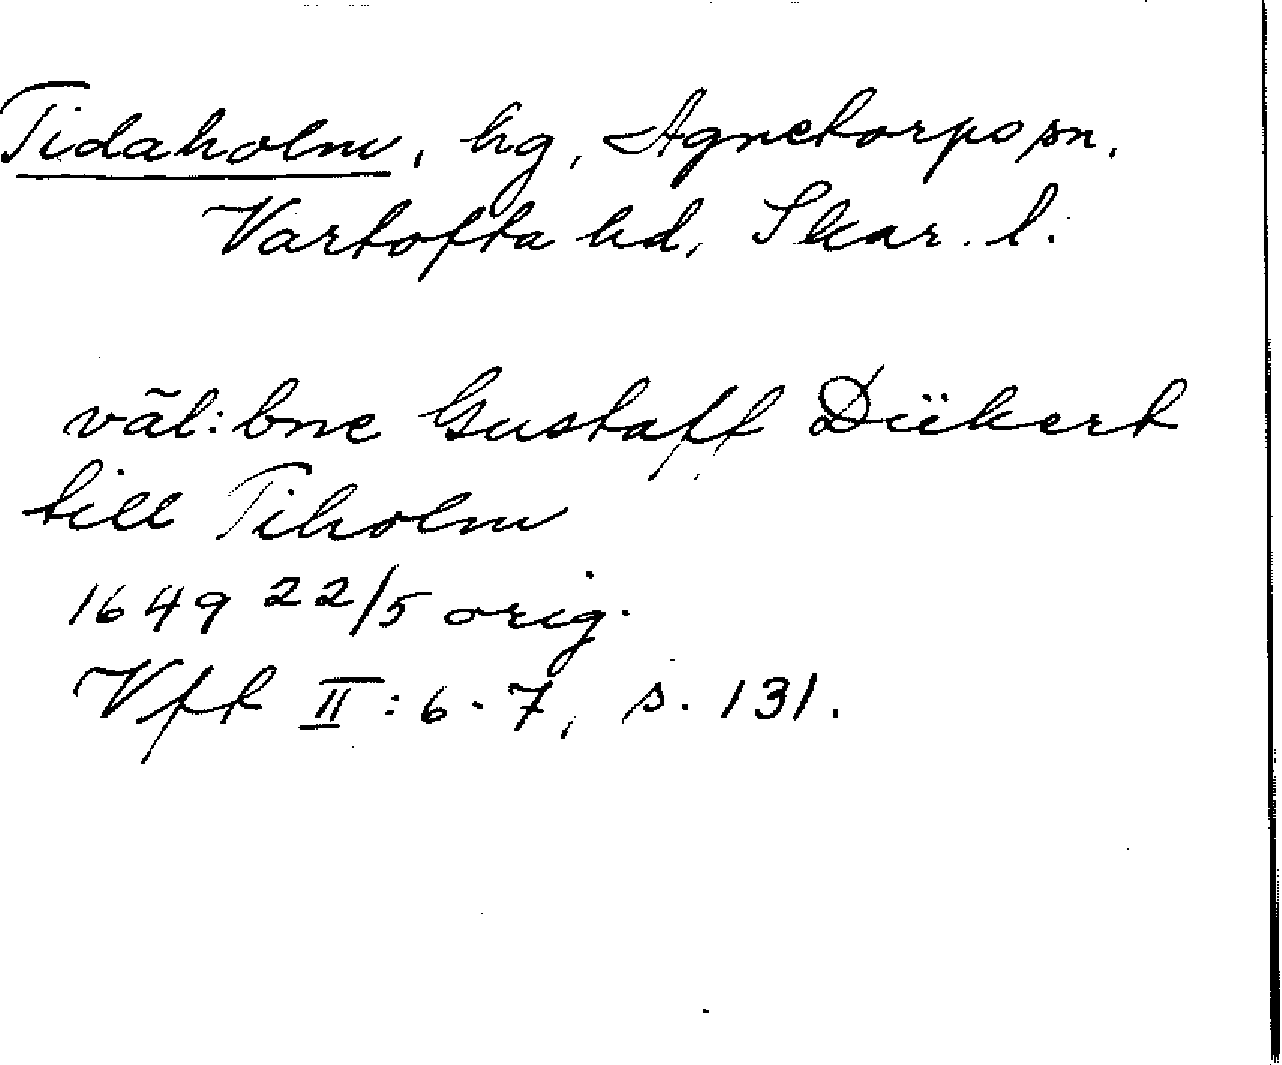 Tidaholm, hg, Agnetorps sn.
Vartofta hd, Skar. l.
väl: bne Gustaff Dükert
till Tiholm
1649 22/5 orig.
Vft II: 6-7, s. 131.